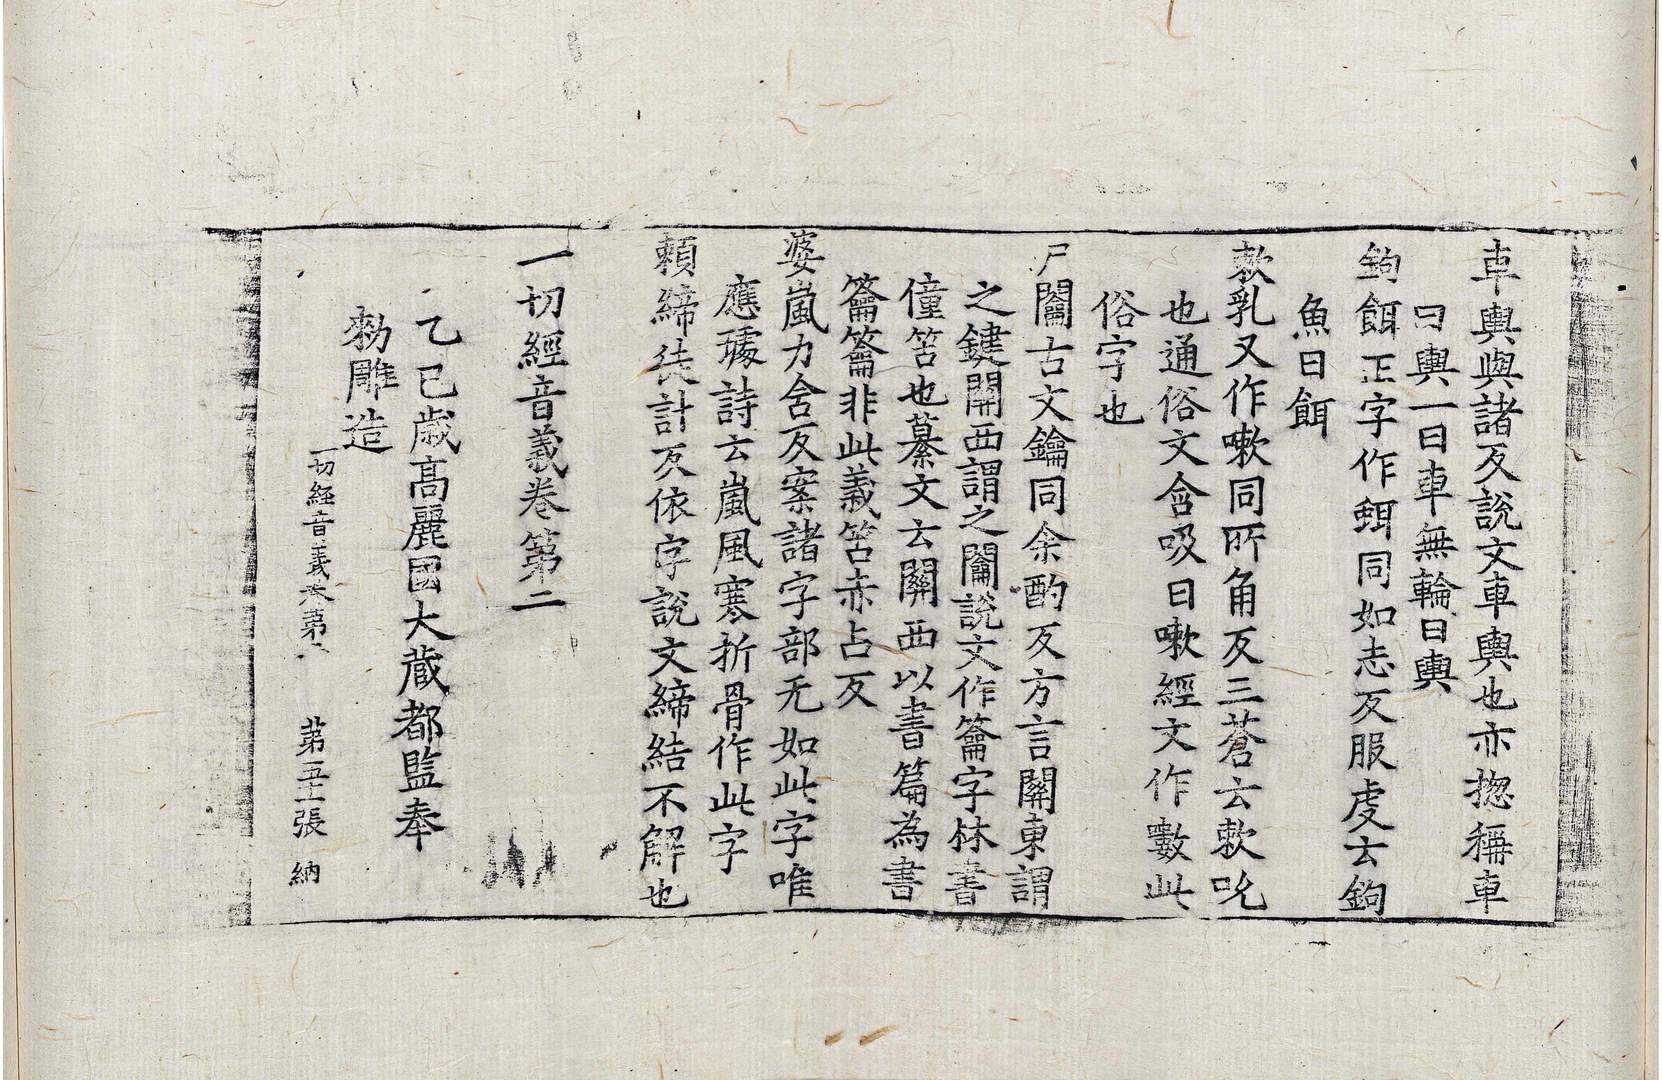 車輿與諸反說文車輿也亦揔稱車
曰輿一曰車無輪曰輿
鉤餌正字作䋙同如志反服虔云鉤
魚曰餌
欶乳又作嗽同所角反三蒼云欶吮
也通俗文含吸曰嗽經文作𣤶此
俗字也
戶闔古文鑰同余酌反方言關東謂
之鍵關西謂之闔說文作籥字林書
僮笘也纂文云關西以書篇為書
籥籥非此義笘赤占反
婆嵐力含反案諸字部无如此字唯
應璩詩云嵐風寒折骨作此字
賴締徒計反依字說文締結不解也
一切經音義卷第二
乙巳歲高麗國大藏都監奉
勑雕造
一切經音義卷第二 第五十張 納